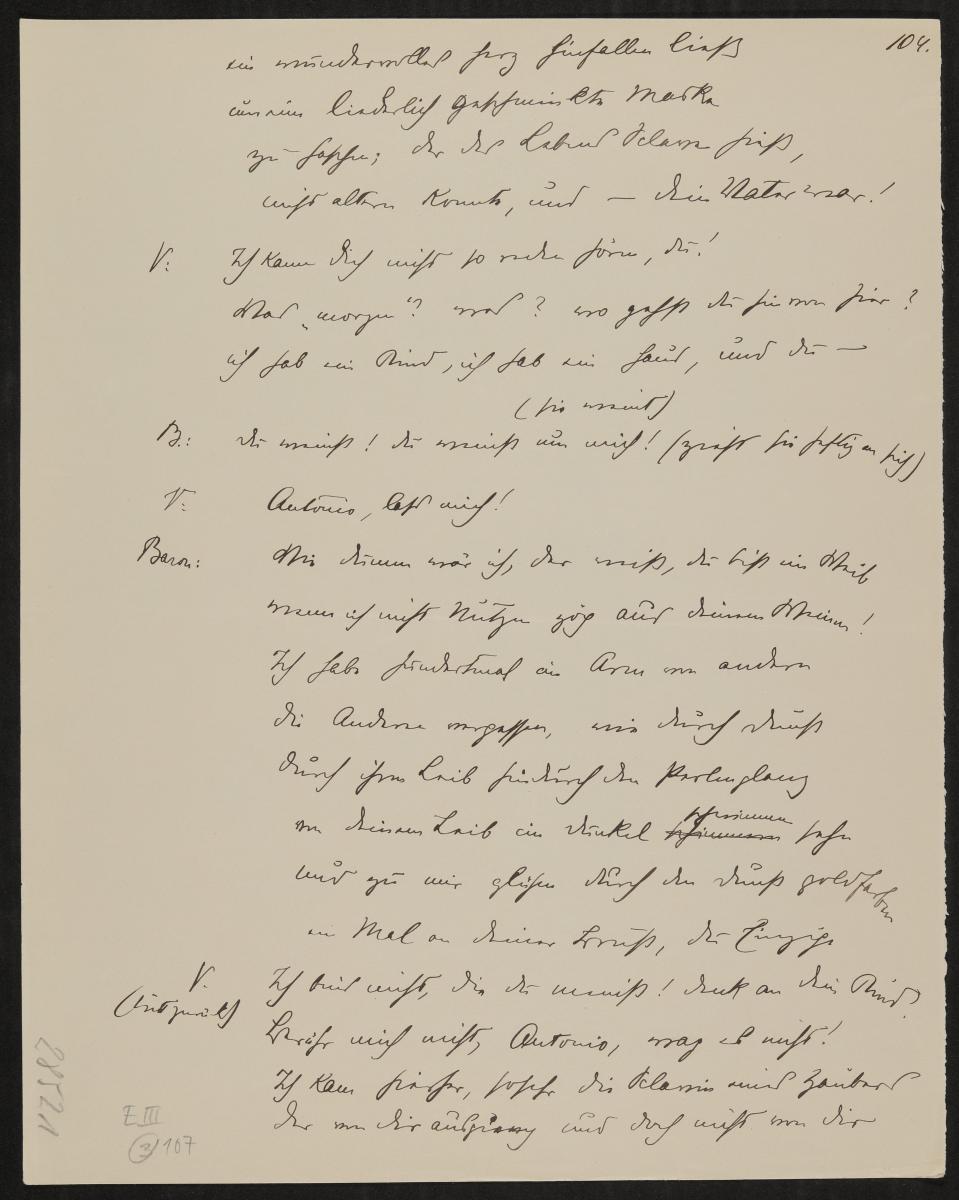 104.
ein wundervolles Herz hinfallen ließ
um eine liederlich geschminkte Maske
zu haschen; der des Lebens Sclave hieß,
nicht altern konnte, und — dein Vater war!
V: Ich kann dich nicht so reden hören, du!
Was „morgen"? was? wo gehst du hin von hier?
ich hab ein Kind, ich hab ein Haus, und du —
(sie weint)
B.: du weinst! du weinst um mich! (zieht sie heftig an sich)
V: Antonio, lass mich!
Baron: Wie dumm wär ich, der weiß, du bist ein Weib
wenn ich nicht Nutzen zög aus deinem Weinen!
Ich habe hundertmal im Arm von andern
die Andere vergessen, wie durch Dunst
durch ihren Leib hindurch den Perlenglanz
von deinem Leib im Dunkel schwimmen sehn
und zu mir glühen durch den Dunst goldfarben
ein Mal an deiner Brust, du Einzige
V. Ich bins nicht, die du meinst! denk an dein Kind?
(tritt zurück)
Berühr mich nicht, Antonio, wag es nicht!
Ich kam hierher, die Sclavin eines Zaubers
der von dir ausgieng und doch nicht von dir
28521
E III
3 107